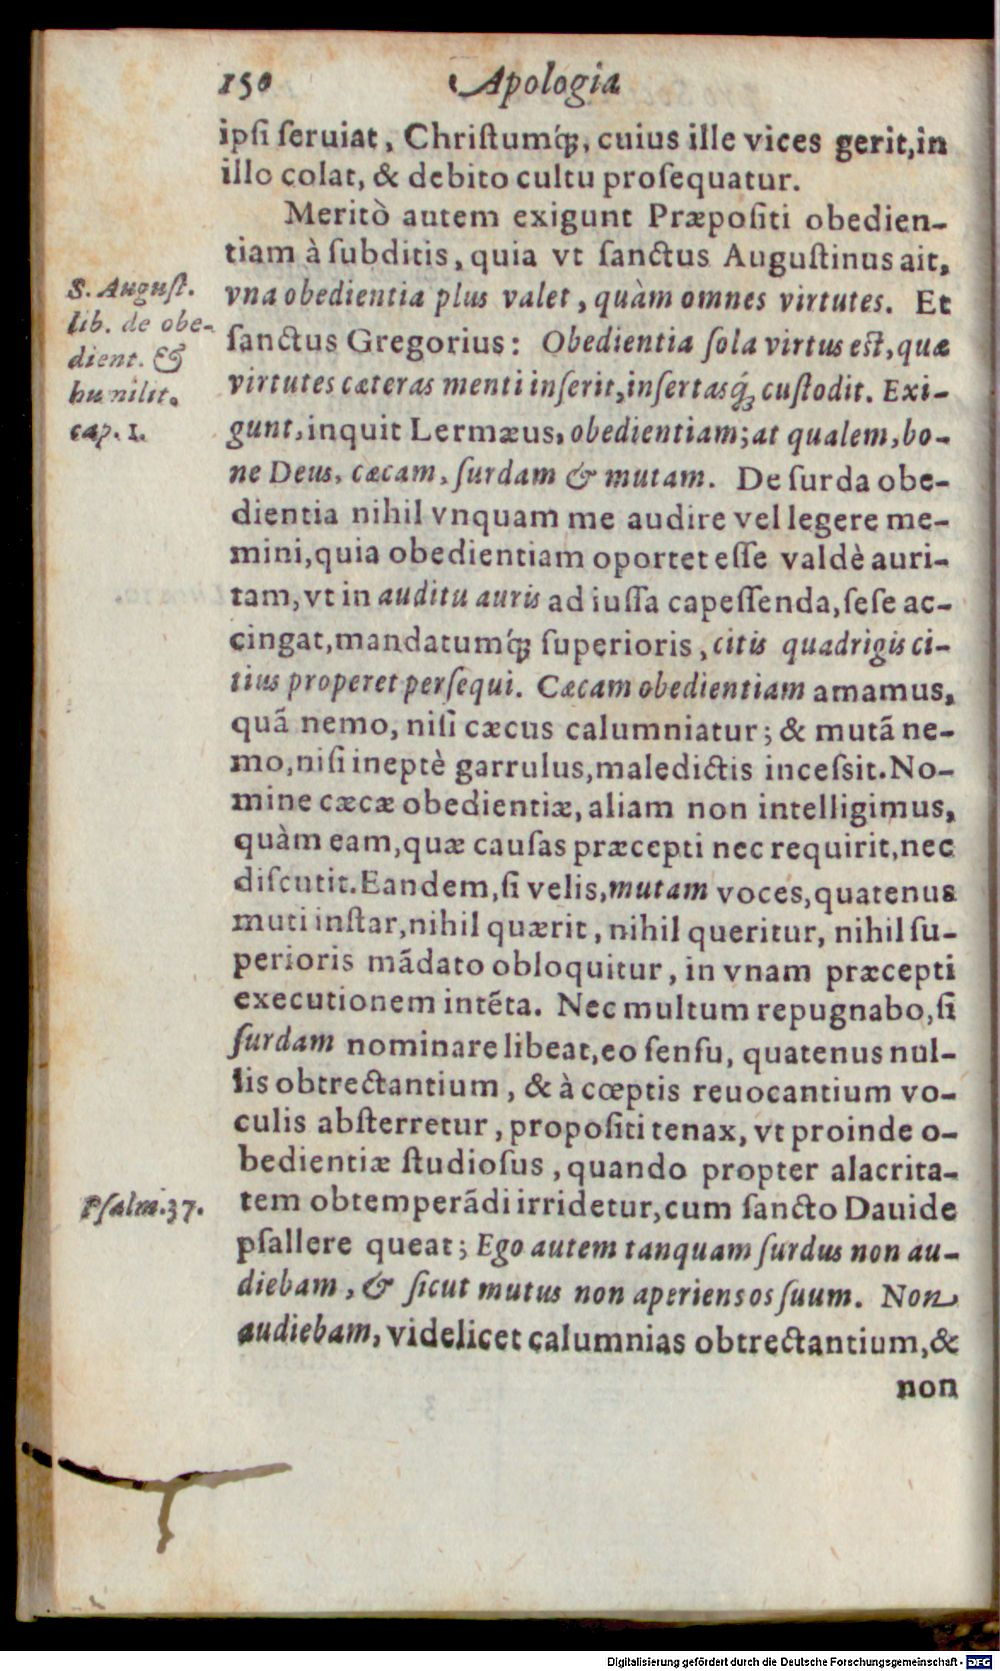 150 Apologia
ipsi seruiat, Christumq́;, cuius ille vices gerit, in
illo colat, & debito cultu prosequatur.
Meritò autem exigunt Præpositi obedien-
tiam à subditis, quia vt sanctus Augustinus ait,
S. August.
lib. de obe-
dient. &
humilit.
cap. 1.
vna obedientia plus valet, quàm omnes virtutes. Et
sanctus Gregorius: Obedientia sola virtus est, quæ
virtutes cæteras menti inserit, insertasq́; custodit. Exi-
gunt, inquit Lermæus, obedientiam; at qualem, bo-
ne Deus, cæcam, surdam & mutam. De surda obe-
dientia nihil vnquam me audire vel legere me-
mini, quia obedientiam oportet esse valdè auri-
tam, vt in auditu auris ad iussa capessenda, sese ac-
cingat, mandatumq́; superioris, citis quadrigis ci-
tius properet persequi. Cæcam obedientiam amamus,
quã nemo, nisi cæcus calumniatur; & mutã ne-
mo, nisi ineptè garrulus, maledictis incessit. No-
mine cæcæ obedientiæ, aliam non intelligimus,
quàm eam, quæ causas præcepti nec requirit, nec
discutit. Eandem, si velis, mutam voces, quatenus
muti instar, nihil quærit, nihil queritur, nihil su-
perioris mãdato obloquitur, in vnam præcepti
executionem intẽta. Nec multum repugnabo, si
surdam nominare libeat, eo sensu, quatenus nul-
lis obtrectantium, & à cœptis reuocantium vo-
culis absterretur, propositi tenax, vt proinde o-
bedientiæ studiosus, quando propter alacrita-
Psalm. 37.
tem obtemperãdi irridetur, cum sancto Dauide
psallere queat; Ego autem tanquam surdus non au-
diebam, & sicut mutus non aperiens os suum. Non
audiebam, videlicet calumnias obtrectantium, &
non
Digitalisierung gefördert durch die Deutsche Forschungsgemeinschaft - DFG